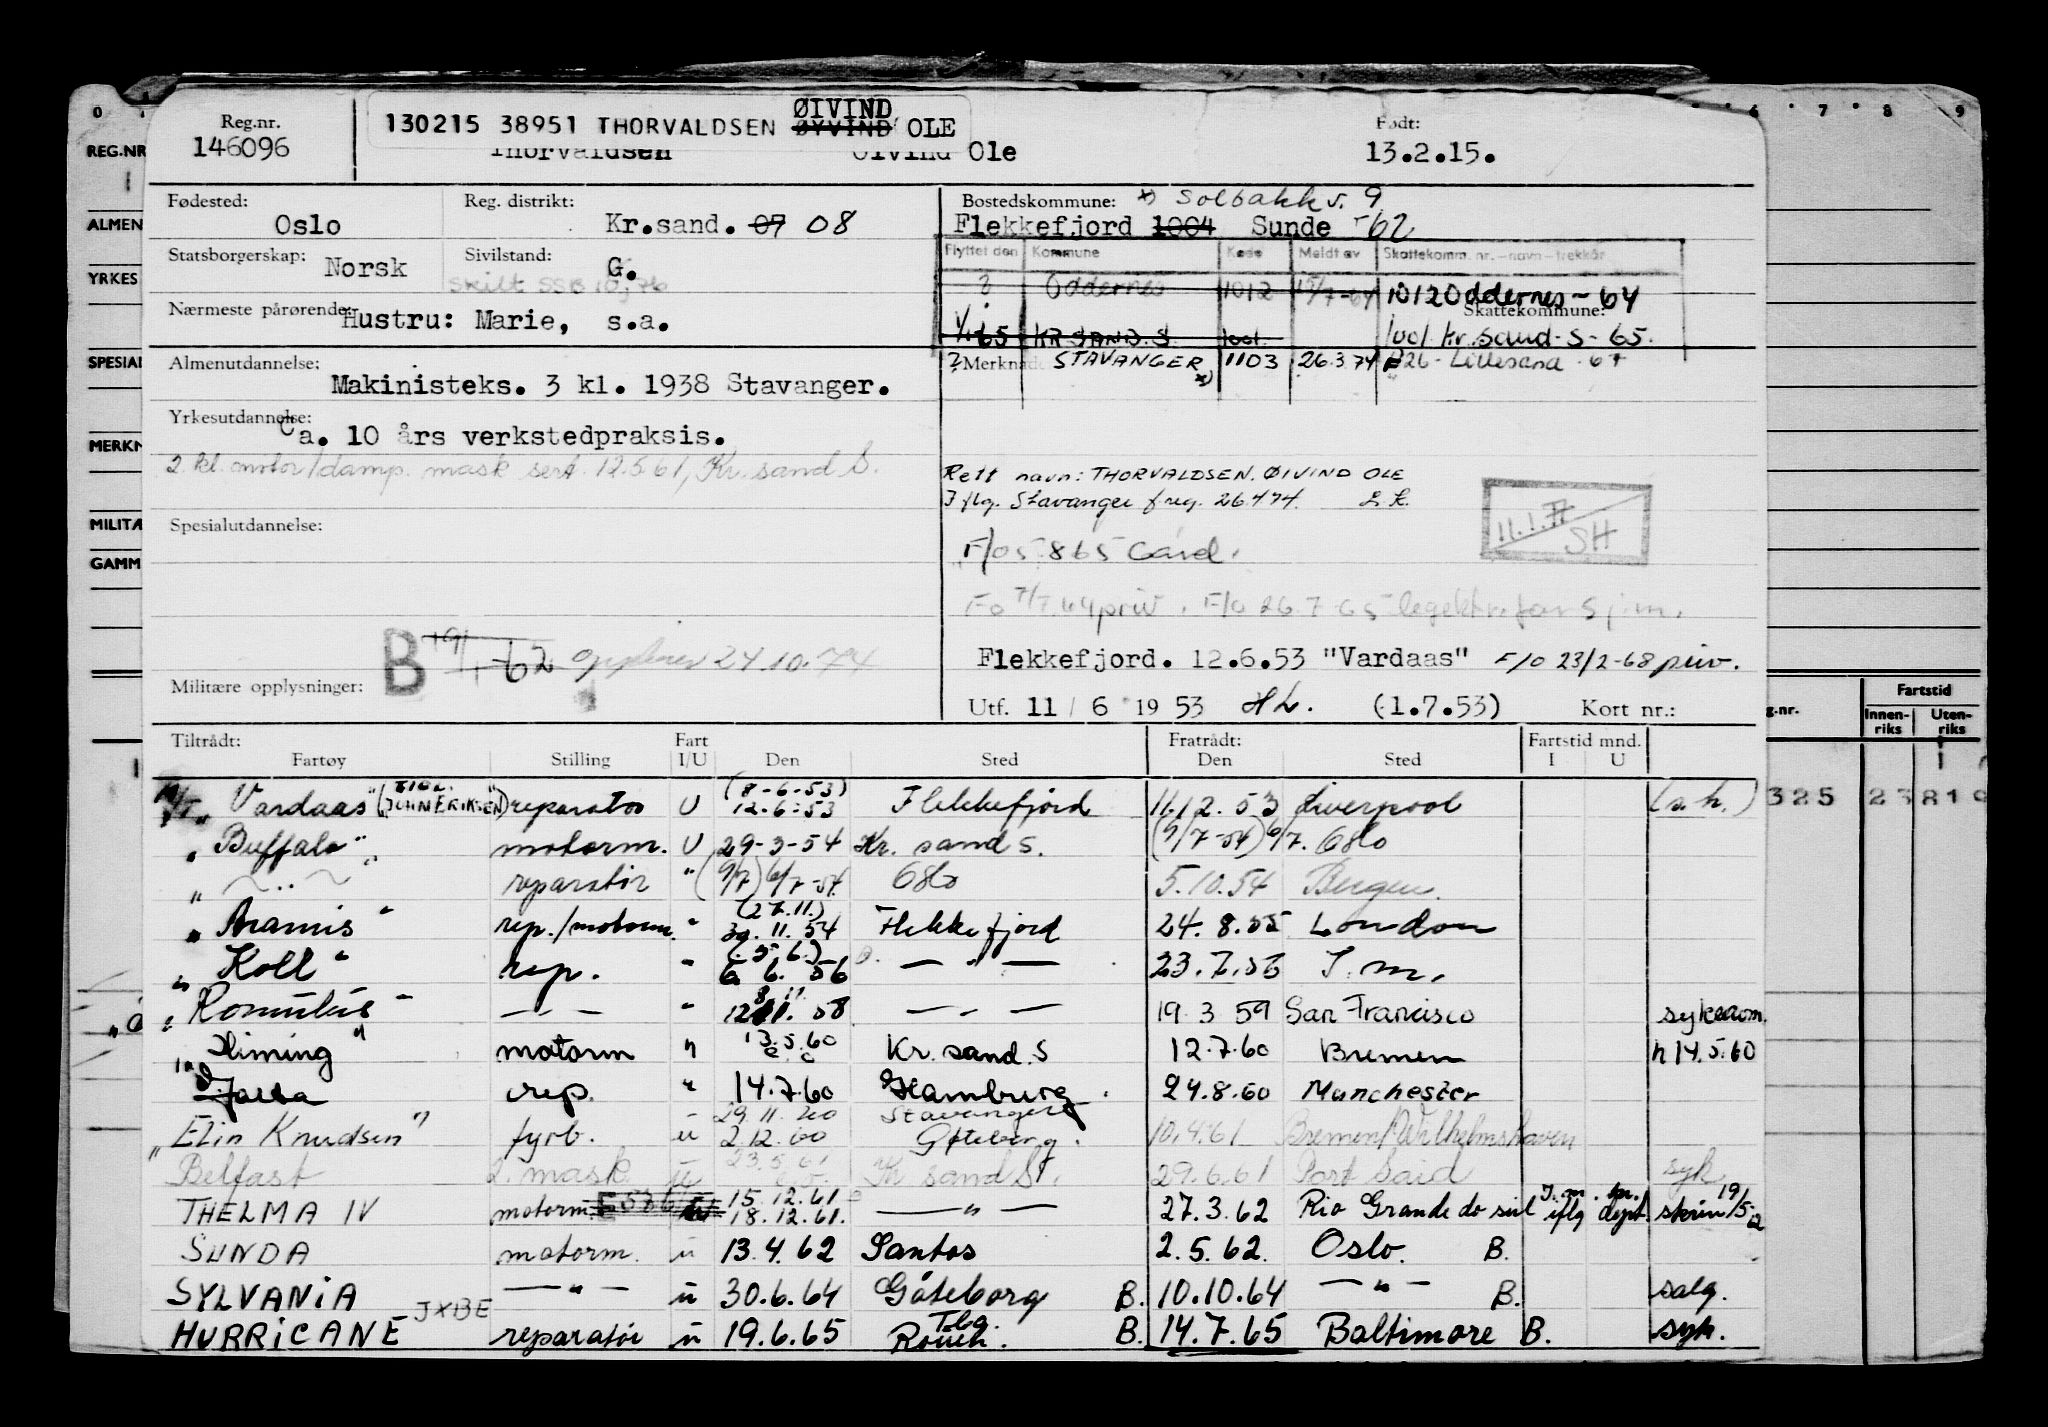 Reg.nr. 146096
130215 38951 THORVALDSEN ØYVIND ØIVIND OLE
Thorvaldsen Øivind Ole
Født: 13.2.15.
Fødested: Oslo
Reg. distrikt: Kr.sand. 07 08
Bostedskommune: x) Solbakkv. 9
Flekkefjord 1004 Sunde -62
Statsborgerskap: Norsk
Sivilstand: G.
Skilt SSB
Flyttet den Kommune Kode Meldt av Skattekomm. nr.-navn-trekkår
? Oddernes 1012 15/7-64 1012 Oddernes - 64
Nærmeste pårørende: Hustru: Marie, s.a.
Skattekommune:
1/1 65 KR SAND. S 1001 1001 kr. sand - S - 65.
? Merknad STAVANGER x) 1103 26.3.74 926 - Lillesand 67
Almenutdannelse: Makinisteks. 3 kl. 1938 Stavanger.
Yrkesutdannelse: Ca. 10 års verkstedpraksis.
2. kl. motor/damp. mask sert. 12.5.61, Kr. sand S.
Rett navn: THORVALDSEN. ØIVIND OLE
Iflg. Stavanger freg. 26.4.74. L.K.
11.1.77 SH
Spesialutdannelse:
F/o 5-8 65 Card.
Fo 7/7.64 priv. F/o 26.7-65
B 62 24.10.74
Flekkefjord. 12.6.53 "Vardaas" F/O 23/2-68 priv.
Militære opplysninger:
Utf. 11/6 1953 (1.7.53) Kort nr.:
Tiltrådt: Fart Fratrådt: Fartstid mnd.
Fartøy Stilling I/U Den Sted Den Sted I U
M/T " Vardaas" (tidl. "JOHN ERIKSEN") reparatør U (8-6-53) 12.6.53 Flekkefjord 11.12.53 Liverpool (s.h.)
" Buffalo" motorm. U 29-3-54 Kr. sand S. (9/7-54) 6/7. Oslo
" ~ .. ~ " reparatør " (9/7) 6/7-54. Oslo 5.10.54 Bergen.
" Aramis " rep./motorm. " (27.11.) 30.11.54 Flekkefjord 24.8.55 London
" Koll " rep. " (5.6.) 6 6. 56 — " — 23.7.56 I. m.
" Romulus " — " — " 58 — " — 19.3.59 San Francisco sykeavm.
" Himing " motorm " 13.5.60 Kr. sand. S 12.7.60 Bremen n 14.5.60
" Jalta rep. " 14.7.60 Hamburg 24.8.60 Manchester
" Elin Knudsen " fyrb. u 29.11.60 2.12.60 Stavanger Gøteborg. 10.4.61 Bremen/Wilhelmshaven
Belfast 2. mask u 23.5.61 Kr sand S. 29.6.61 Port Said syk
THELMA IV motorm. 15.12.61 18.12.61. — " — 27.3.62 Rio Grande do sul iflg dept. skriv 19/5-62
SUNDA motorm. u 13.4.62 Santos 2.5.62. Oslo. B.
SYLVANIA — " — u 30.6.64 Göteborg B. 10.10.64 — " — B. salg.
HURRICANE JXBE reparatør u 19.6.65 Tbg. Rouen. B. 14.7.65 Baltimore B. syk.
0 6 7 8 9
REG.NR
ALMEN
YRKES
SPESIAL
MERKN
MILITÆ
GAMM
g.nr. Fartstid
Innen-riks Uten-riks
325 23 819